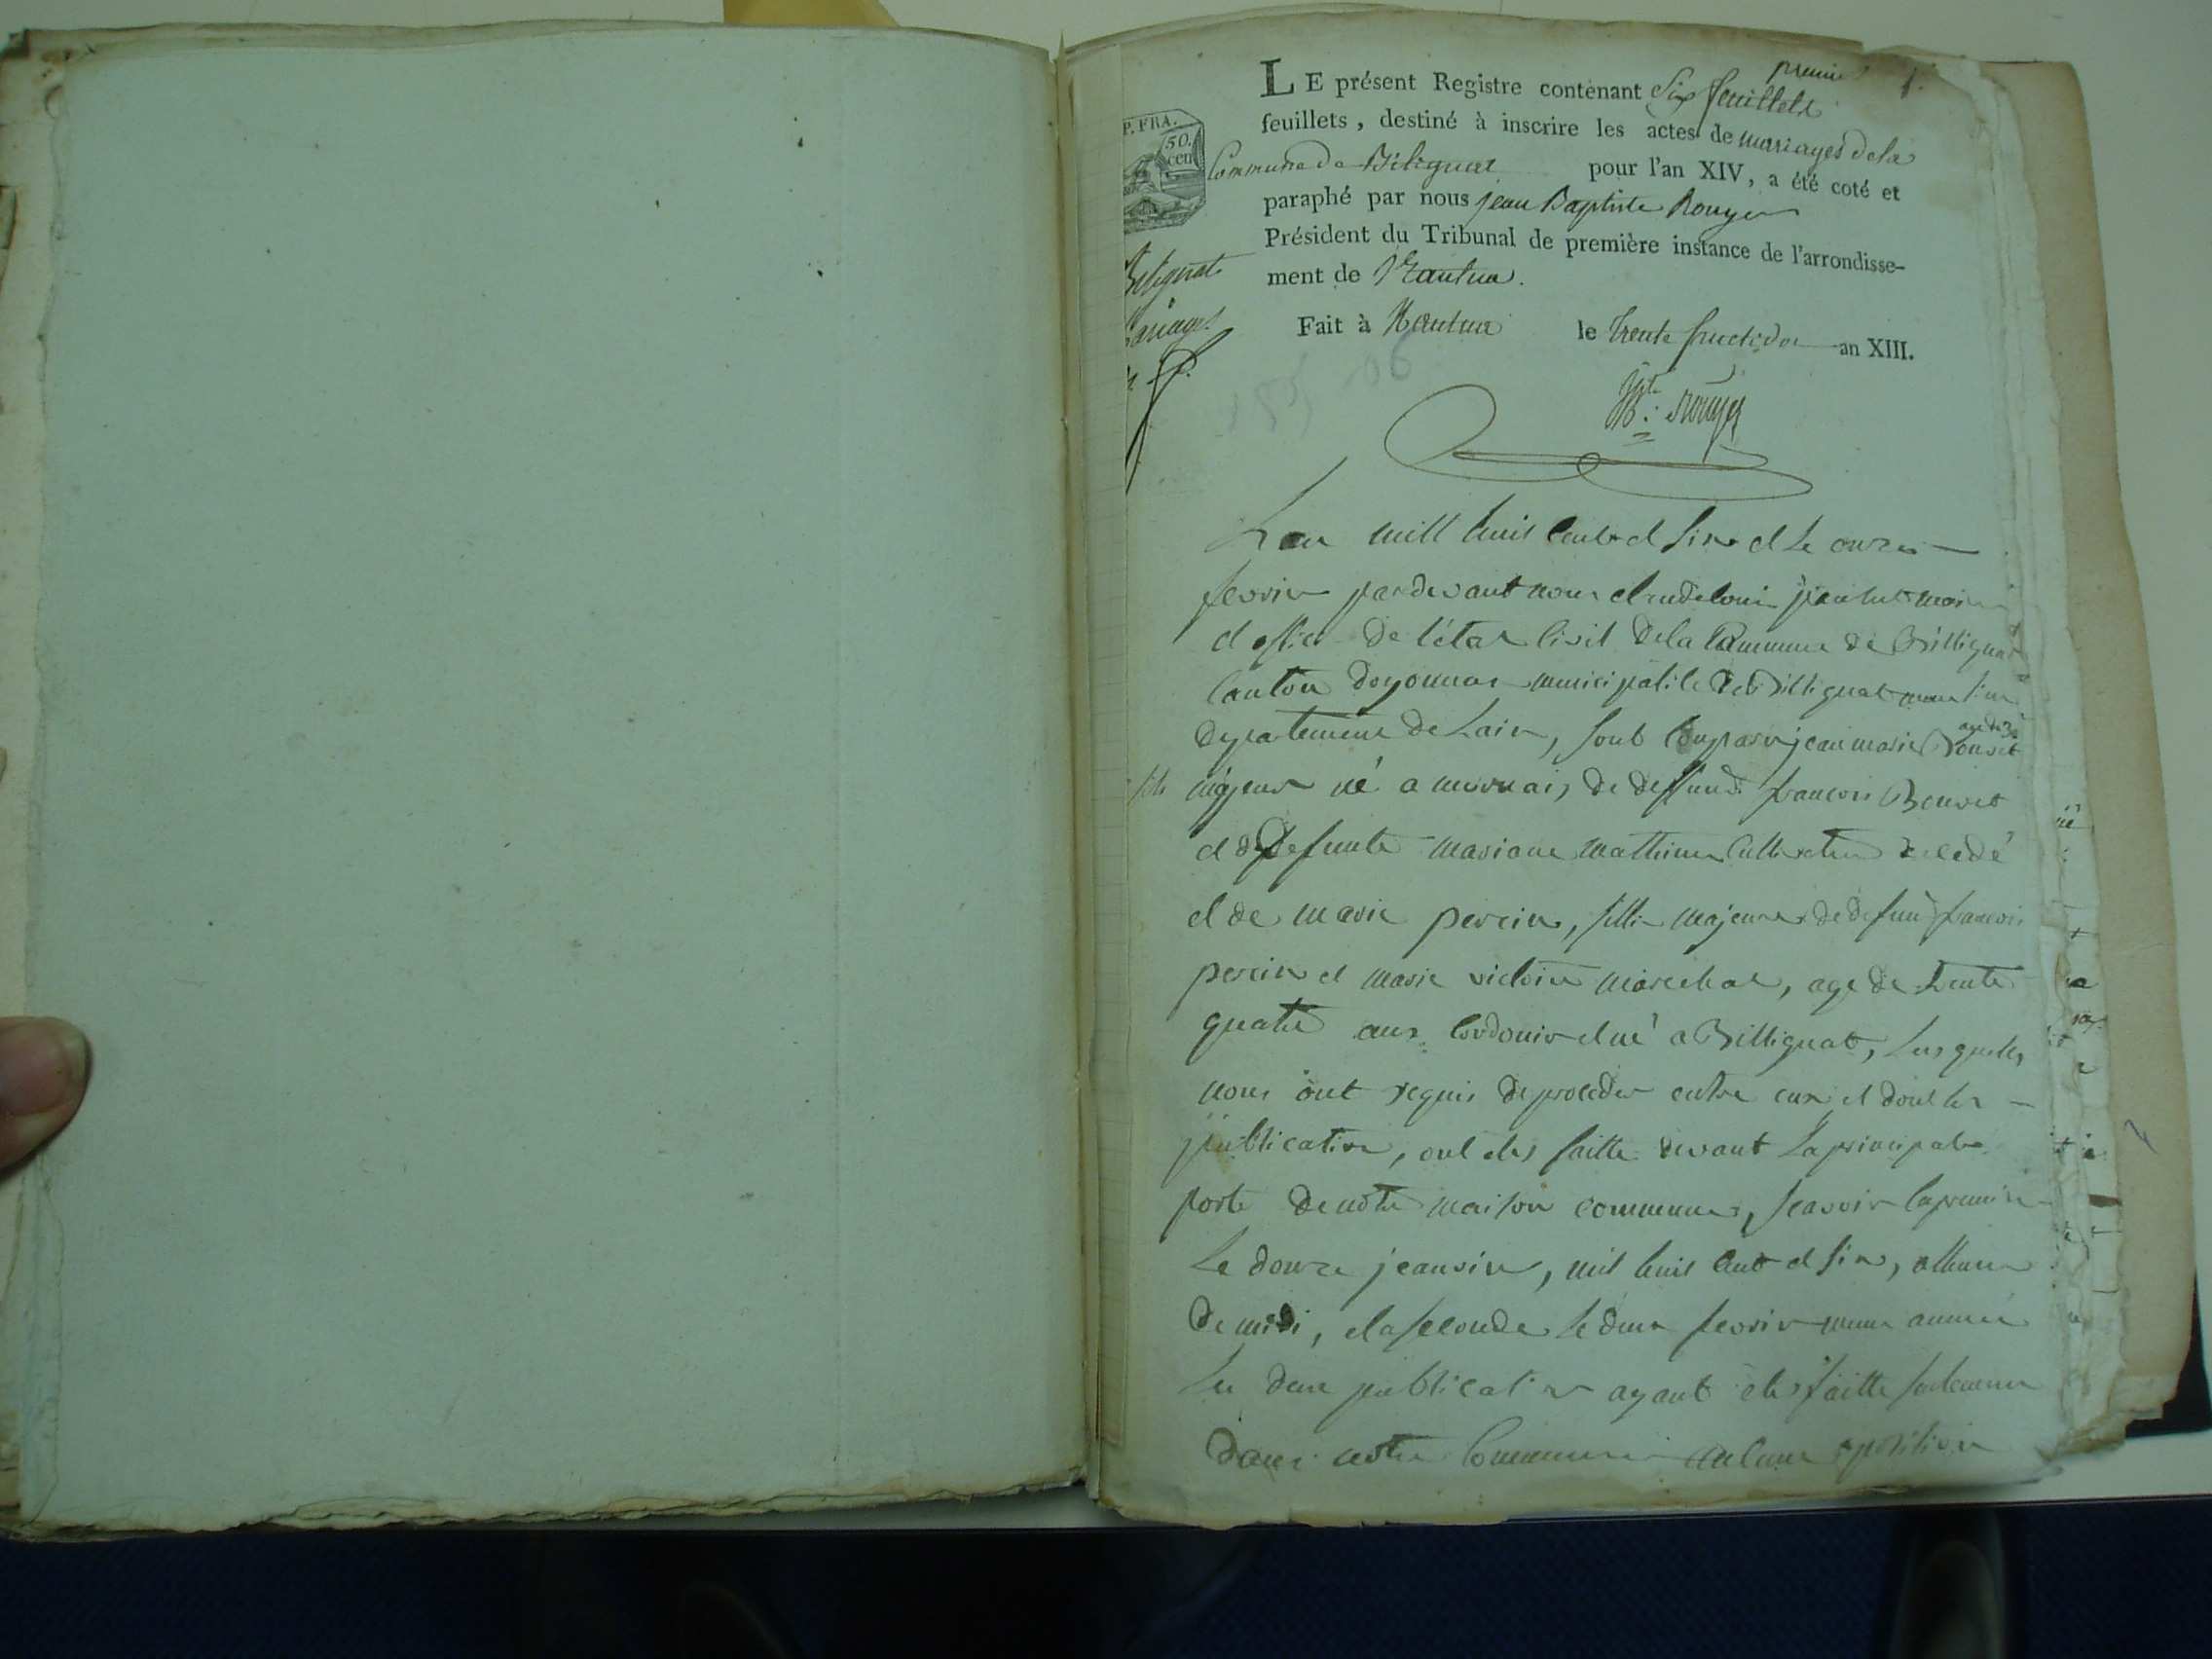 premier 1.
LE présent Registre contenant Six feuillets
feuillets, destiné à inscrire les actes de mariages dela
P. FRA.
50.
cen
Commune de Béligniat pour l'an XIV, a été coté et
paraphé par nous jean Baptiste Rouyer
Président du Tribunal de première instance de l'arrondisse-
Béligniat
ment de Nantua.
Mariages
Fait à Nantua le trente fructidor an XIII.
Jn Bte: Rouyer
L'an mill huit Cent et six et le onze
fevrier pardevant nous claude louis maire
et officier De l'état Civil Dela Commune de Billignat
Canton doyonnax municipalité de Billignat
Departement de Lain, sont Comparu jean marie Bouvet
age de 3
fils majeur né a mornai, de deffund francois Bouvet
et de defunte mariane mathieu Cultivateur decedé
et de marie perrin, fille majeure de defun francois
perrin et marie victoire marechal, age de trente
quatre ans Cordonier et né a Billignat, lesquels
nous ont requis de proceder entre eux et dont les
publication, ont etes faitte devant la principale
porte de notre maison commune, scavoir la premiere
le douze jeanvier, mil huit Cent et six, a lheure
De midi, et la seconde le deux fevrier meme année
les deux publication ayant etes faitte seulement
dans notre Commune aucune oposition